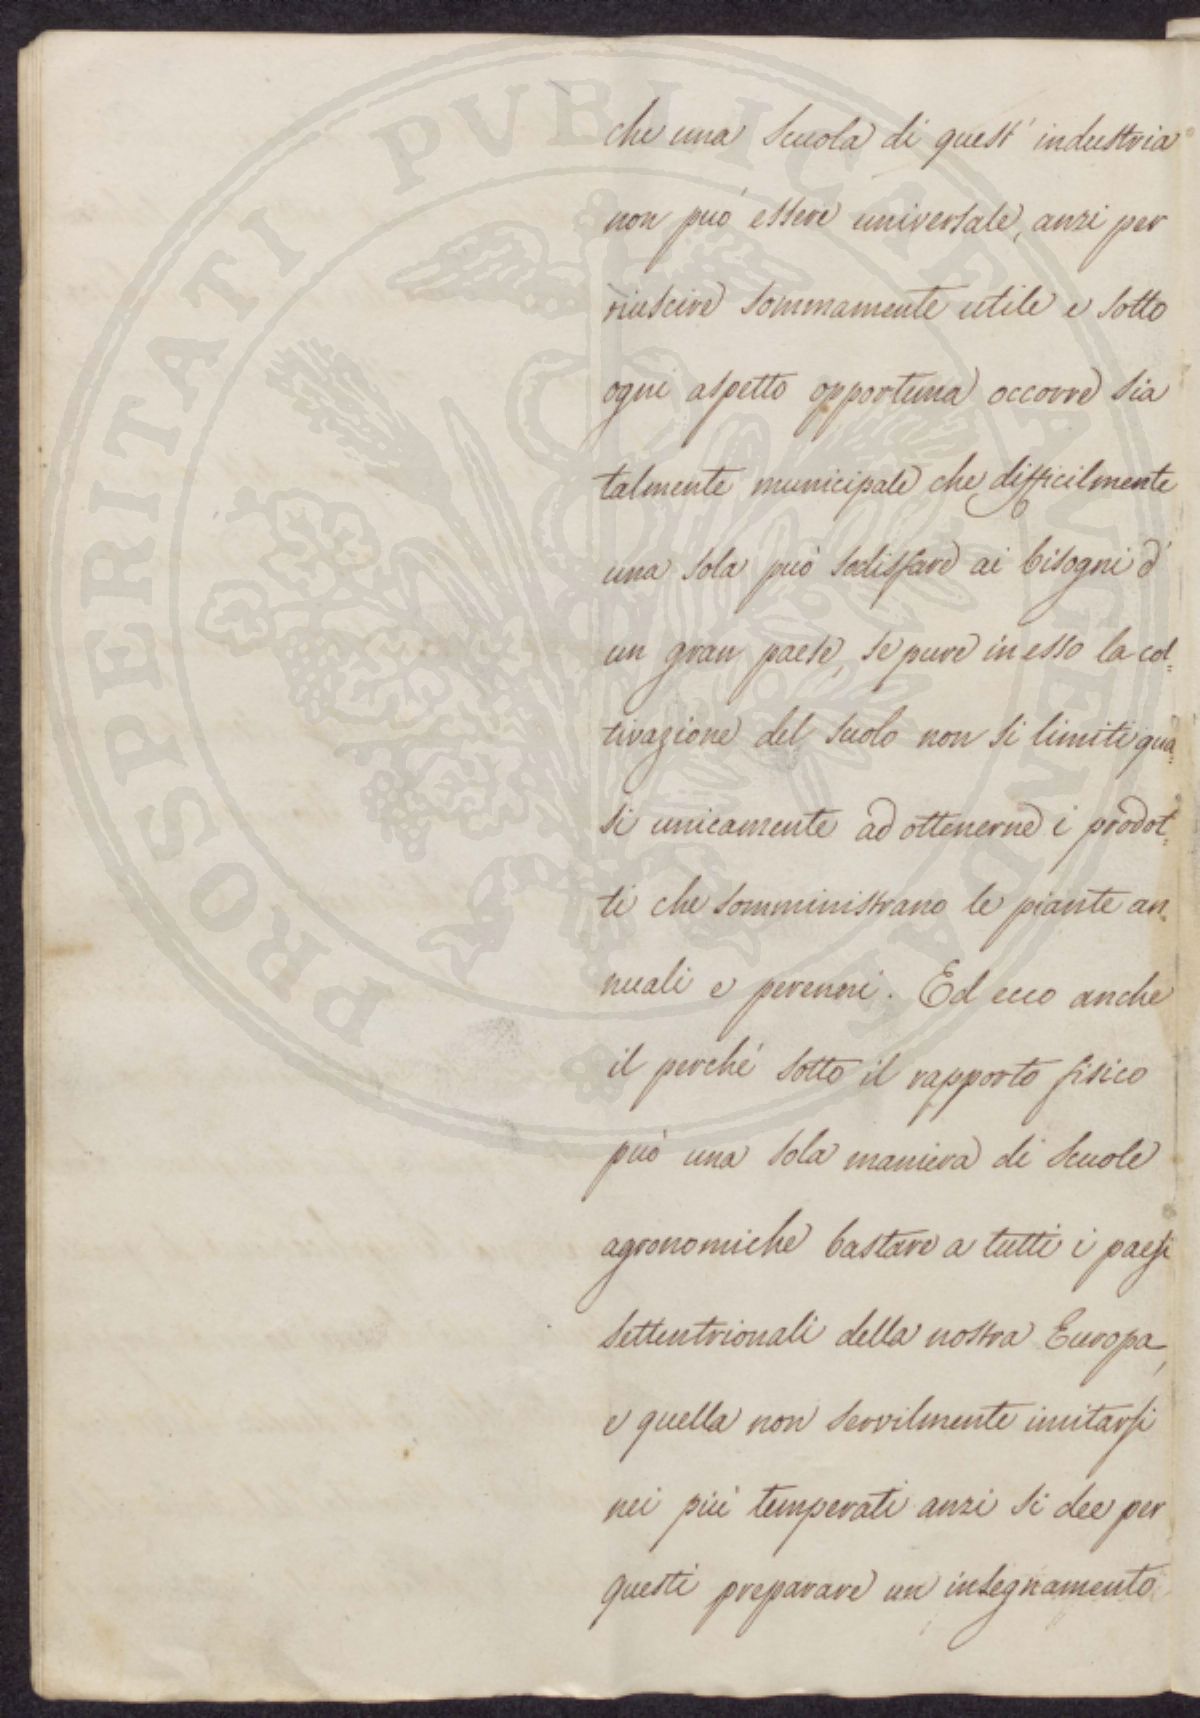 che una Scuola di quest' industria
non può essere universale, anzi per
riuscire sommamente utile e sotto
ogni aspetto opportuna occorre sia
talmente municipale che difficilmente
una sola può sodisfare ai bisogni d'
un gran paese, se pure in esso la col=
tivazione del suolo non si limiti qua=
si unicamente ad ottenerne i prodot=
ti che somministrano le piante an=
nuali e perenni. Ed ecco anche
il perché sotto il rapporto fisico
può una sola maniera di Scuole
agronomiche bastare a tutti i paesi
settentrionali della nostra Europa,
e quella non servilmente imitarsi
nei più temperati anzi si dee per
questi preparare un insegnamento
PROSPERITATI PVBLICAE AVGENDAE